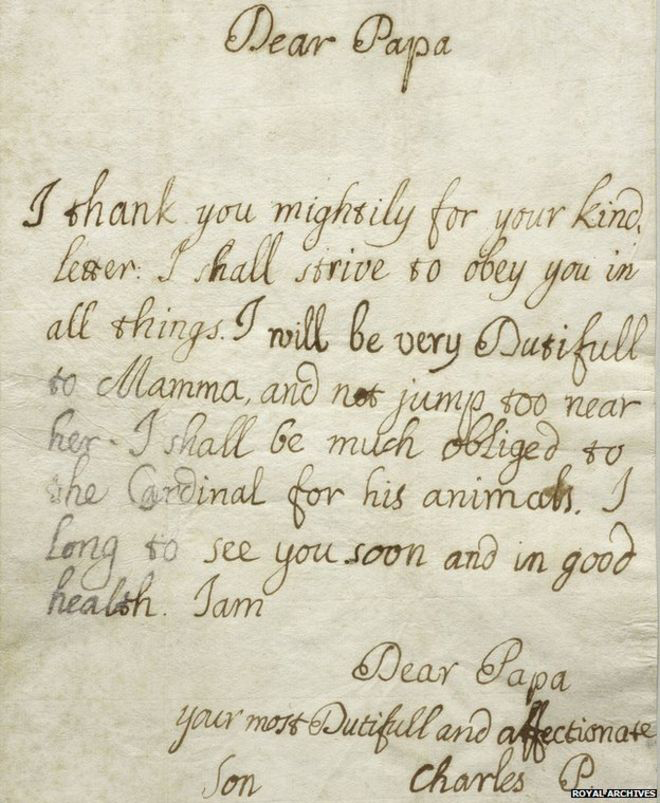 Dear Papa
I thank you mightily for your kind
letter. I shall strive to obey you in
all things. I will be very Dutifull
to Mamma, and not jump too near
her. I shall be much obliged to
the Cardinal for his animals. I
long to see you soon and in good
health. I am
Dear Papa
your most Dutifull and affectionate
Son Charles P.
ROYAL ARCHIVES